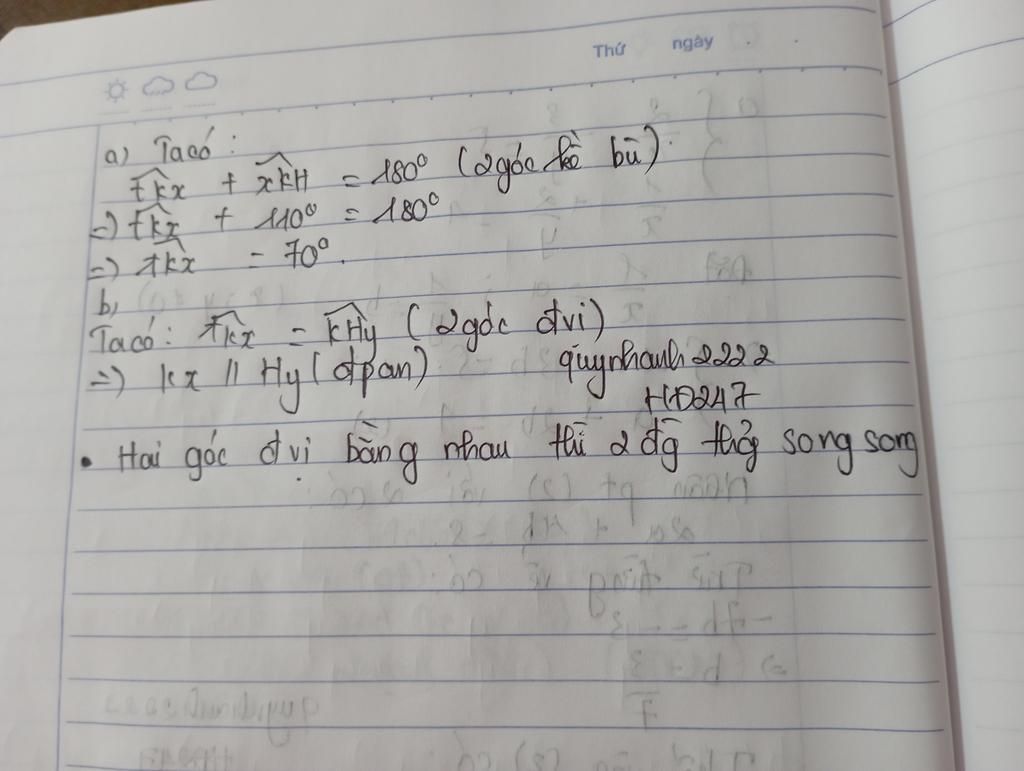 Thứ ngày
a) Ta có :
tkx + xkH = 180° (2 góc kề bù).
=) tkx + 110° = 180°
=) tkx = 70°.
b,
Ta có: tkx = kHy ( 2 góc đvi)
=) kx // Hy ( đpan) quynhanh2222
HĐ247
• Hai góc đvị bằng nhau thì 2 đg thẳg song song